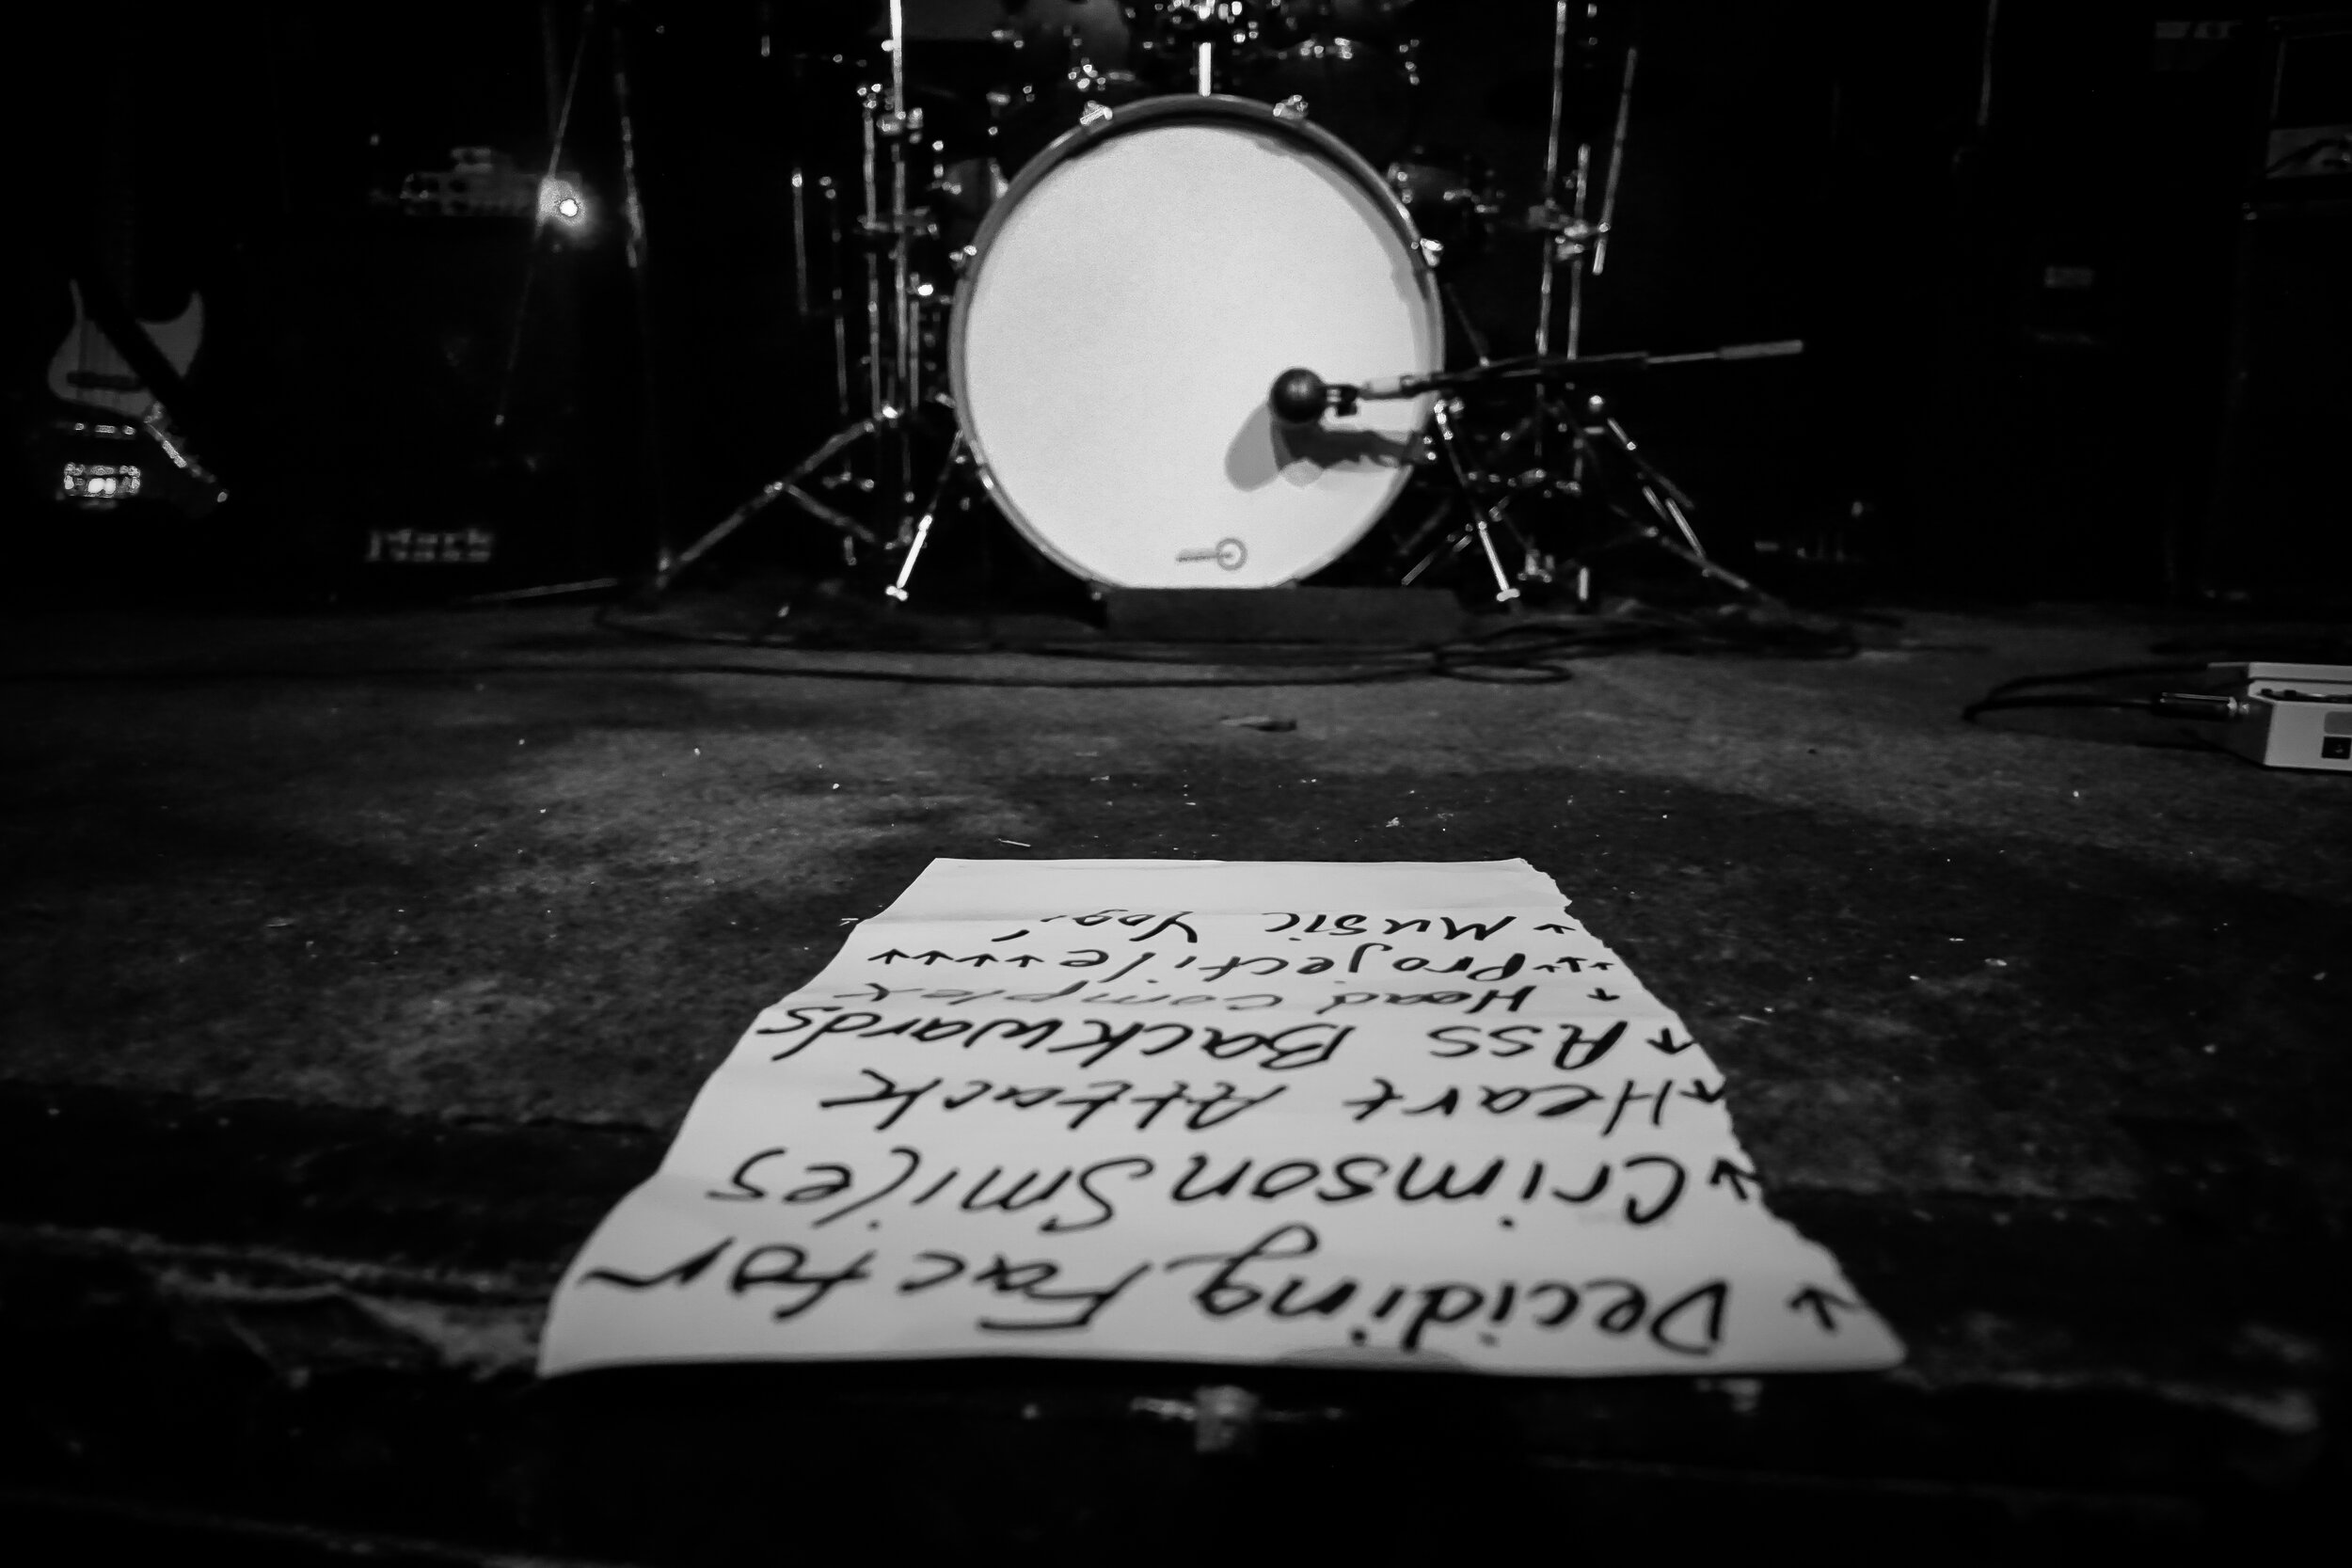 Mark
Deciding Factor
Crimson Smiles
Heart Attack
Ass Backwards
Head Complex
Projectile
Music